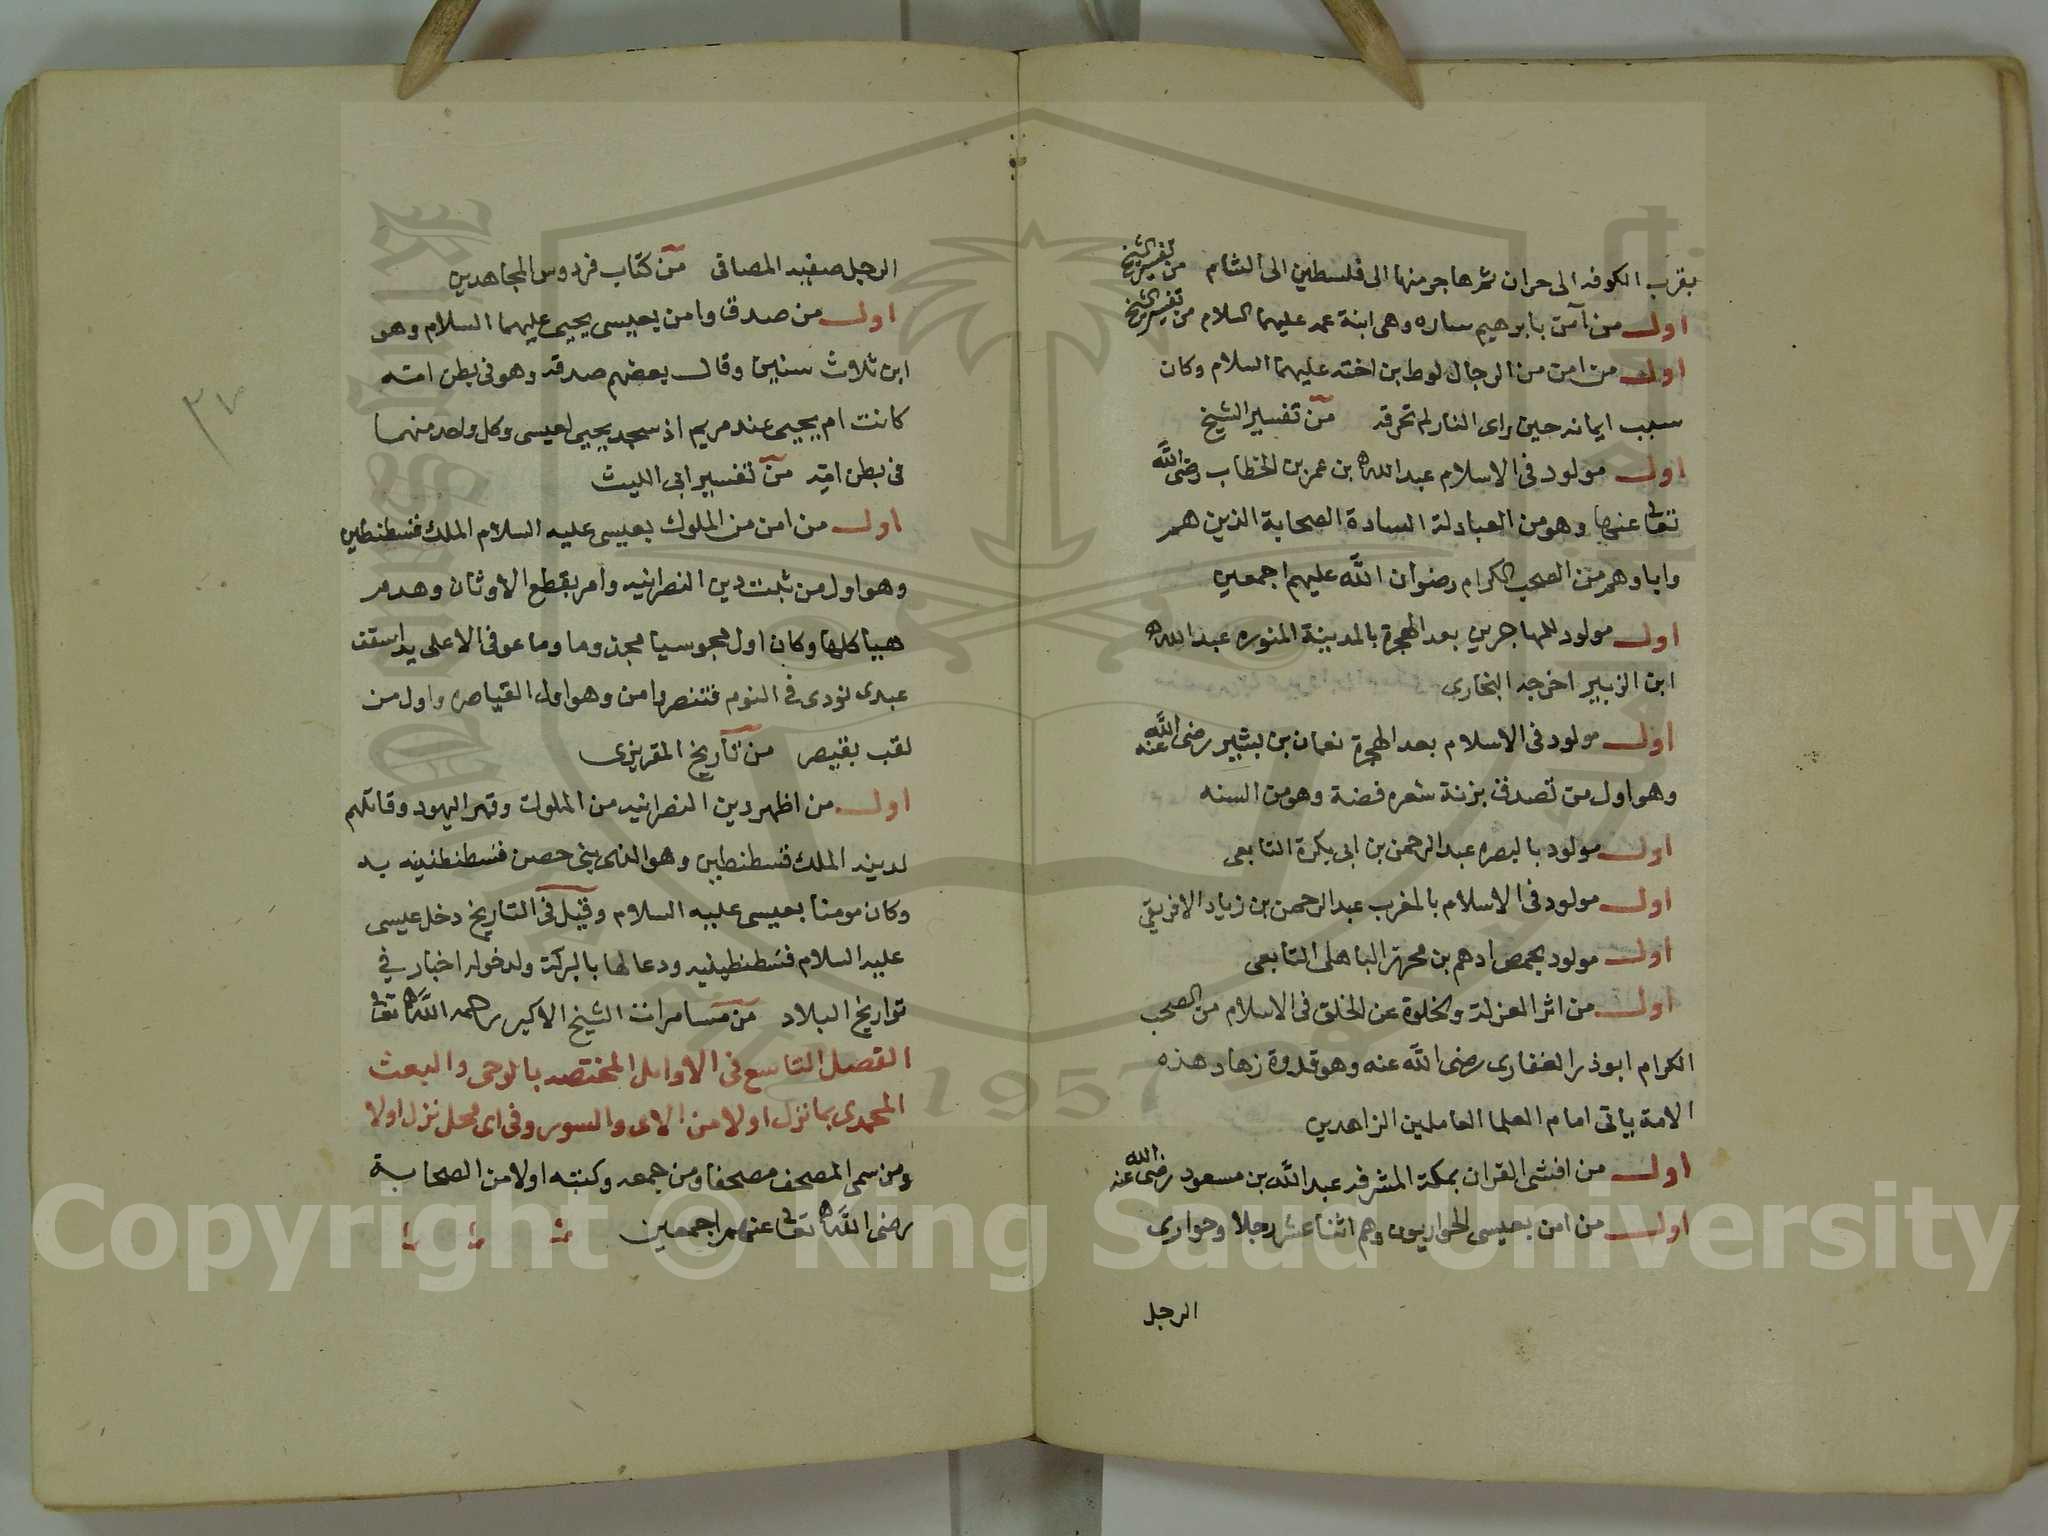 بقرب الكوفه الى حران ثم هاجر منها الى فلسطين الى الشام من تفسير الشيخ
اول من آمن بابرهيم ساره وهى ابنة عمه عليهما السلام من تفسير الشيخ
اول من امن من الرجال لوط بن اخته عليهما السلام وكان
سبب ايمانه حين راى النار لم تحرقه من تفسير الشيخ
اول مولود فى الاسلام عبد الله بن عمر بن الخطاب رضى الله
تعالى عنهما وهو من العبادلة السادة الصحابة الذين هم
واباوهم من الصحب الكرام رضوان الله عليهم اجمعين
اول مولود للمهاجرين بعد الهجرة بالمدينة المنوره عبد الله
ابن الزبير اخرجه البخارى
اول مولود فى الاسلام بعد الهجرة نعمان بن بشير رضى الله عنه
وهو اول من تصدق بزنة شعره فضة وهو من السنه
اول مولود بالبصره عبد الرحمن بن ابى بكرة التابعى
اول مولود فى الاسلام بالمغرب عبد الرحمن بن زياد الافريقى
اول مولود بحمص ادهم بن محرز الباهلى التابعى
اول من اثر العزلة والخلوة عن الخلق فى الاسلام من الصحب
الكرام ابوذر الغفارى رضى الله عنه وهو قدوة زهاد هذه
الامة ياتى امام العلما العاملين الزاهدين
اول من افشى القران بمكة المشرفه عبد الله بن مسعود رضى الله عنه
اول من امن بعيسى الحواريون وهم اثنا عشر رجلا وحوارى
الرجل
الرجل صفيه المصافى من كتاب فردوس المجاهدين
اول من صدق وامن بعيسى يحيى عليهما السلام وهو
ابن ثلاث سنين وقال بعضهم صدقه وهو فى بطن امته
كانت ام يحيى عند مريم اذ سجد يحيى لعيسى وكل ولد منهما
فى بطن امه من تفسير ابى الليث
اول من امن من الملوك بعيسى عليه السلام الملك قسطنطين
وهو اول من ثبت دين النصرانيه وامر بقطع الاوثان وهدم
هياكلها وكان اول مجوسيا
عبدى نودى فى النوم فتنصر وامن وهو اول القياصره واول من
لقب بقيصر من تأريخ المقريزى
اول من اظهر دين النصرانيه من الملوك وقهر اليهود وقاتلهم
لدينه الملك قسطنطين وهو الذى بنى حصن قسطنطنيه به
وكان مومنا بعيسى عليه السلام وقيل فى التاريخ دخل عيسى
عليه السلام قسطنطينيه ودعا لها بالبركة ولدخوله اخبار في
تواريخ البلاد من مسامرات الشيخ الاكبر رحمه الله تعالى
الفصل التاسع فى الاوايل المختصه بالوحى والبعث
المحمدى بما نزل اولا من الاى والسور وفى اى محل نزل اولا
ومن سمى المصحف مصحفا ومن جمعه وكتبه اولا من الصحابة
رضى الله تعالى عنهم اجمعين
٣٧
1957
Copyright © King Saud University